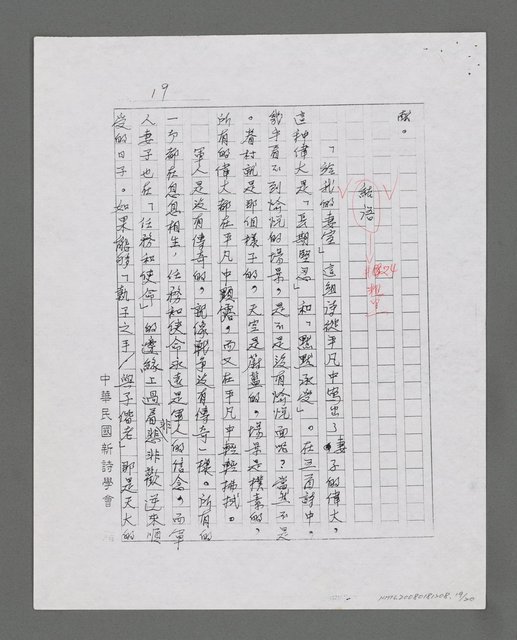 19
獻。
結語
「給我的妻室」這組詩從平凡中寫出了妻子的偉大，
這種偉大是「長期堅忍」和「默默承受」。在三首詩中，
幾乎看不到愉悅的場景，是不是沒有愉悅面呢？當然不是
。眷村就是那個樣子的，天空是蔚藍的，場景是樸素的，
所有的偉大都在平凡中顯露，而又在平凡中輕輕拂拭。
軍人是沒有傳奇的，就像戰爭沒有傳奇一樣。所有的
一切都在息息相生，任務和使命永遠是軍人的信念，而軍
人妻子也在「任務和使命」的邊緣上過着悲非歡逆來順
受的日子。如果能夠「執子之手／與子偕老」那是天大的
中華民國新詩學會
NMTL20080181208. 19/20